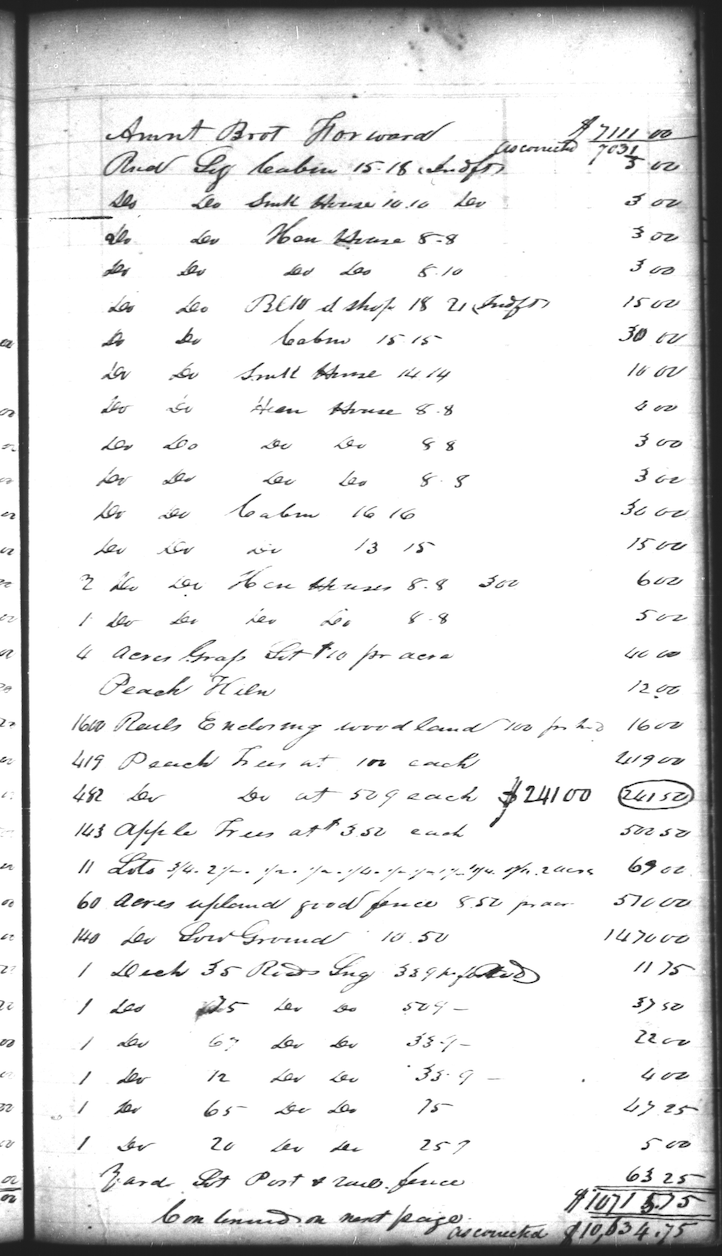 Amnt Brot Forward $7111 00
as corrected 7031
Rud Log Cabin 15.18 (Indft) 5 00
Do Do Smk House 10.10 Do 3 00
Do Do Hen House 8-8 3 00
Do Do Do Do 8.10 3 00
Do Do shop 18 21 (Indft) 15 00
Do Do Cabin 15 15 30 00
Do Do Smk House 14 14 10 00
Do Do Hen House 8.8 00
Do Do Do Do 8 8 3 00
Do Do Do Do 8.8 3 00
Do Do Cabin 16 16 30 00
Do Do Do 13 15 15 00
2 Do Do Hen Houses 8.8 300 6 00
1 Do Do Do Do 8-8 5 00
4 acres Grass Lot $10 pr acre 40 00
Peach Kiln 12.00
1600 Rails Enclosing woodland 100 pr 16 00
419 Peach Trees at 100 each 419 00
482 Do Do at 50¢ each $24100 24150
143 Apple Trees at $3.50 each 500 50
11 Lots 69 00
60 acres upland good fence 8.50 pr acr 510 00
140 Do Low Ground 10.50 1470 00
1 Dich 35 Rods Lng 33¢ 11 75
1 Do 75 Do Do 50¢ - 37 50
1 Do 67 Do Do 33-¢ - 22 00
1 Do 12 Do Do 33-¢ - 4 00
1 Do 65 Do Do 75 47.25
1 Do 20 Do Do 25¢ 5 00
Yard Lot Post & rail fence 63 25
$10715.75
Continued on next page
as corrected $10,634.75